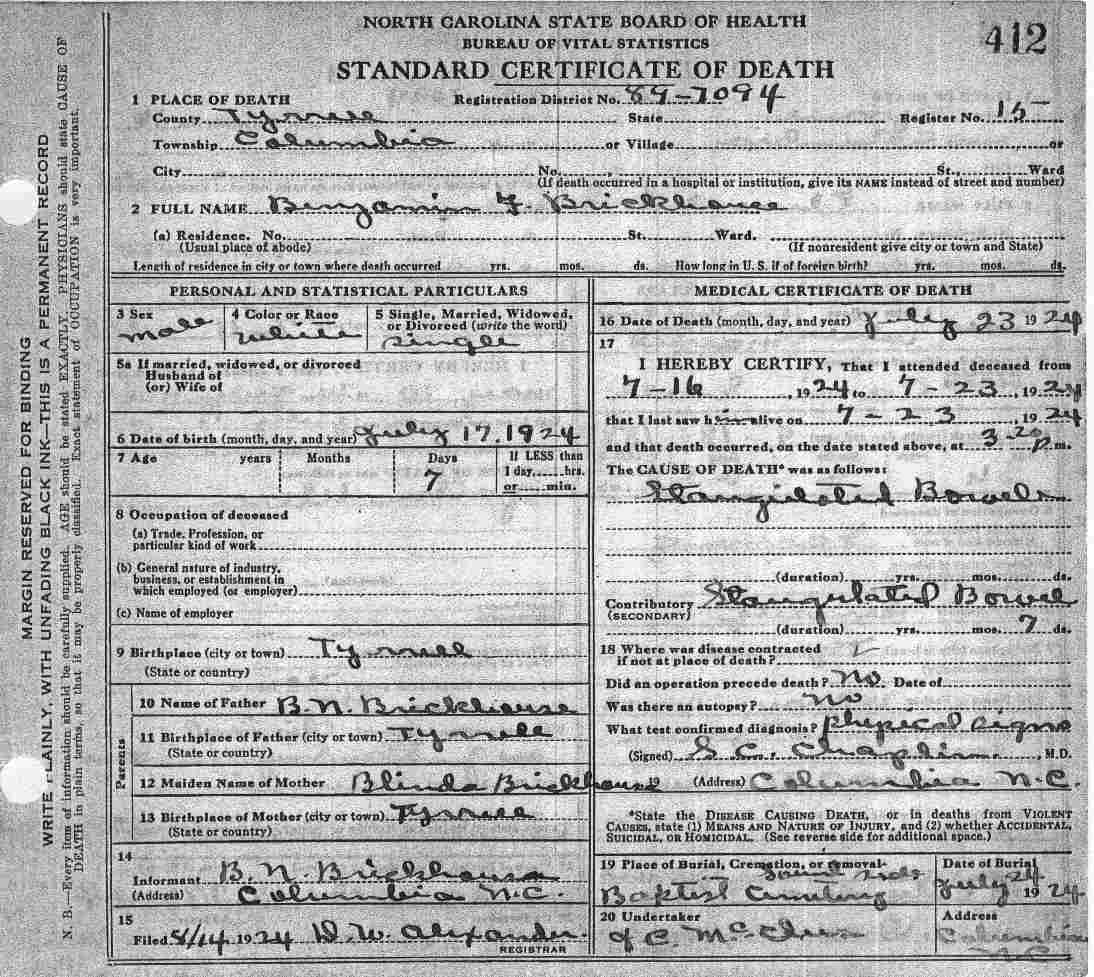 NORTH CAROLINA STATE BOARD OF HEALTH
BUREAU OF VITAL STATISTICS
412
STANDARD CERTIFICATE OF DEATH
1 PLACE OF DEATH Registration District No. 89-7094
County Tyrrell State Register No. 15
Township Columbia or Village or
City No. , St., Ward
(If death occurred in a hospital or institution, give its NAME instead of street and number)
2 FULL NAME Benjamin F. Brickhouse
(a) Residence. No. St. Ward.
(Usual place of abode) (If nonresident give city or town and State)
Length of residence in city or town where death occurred yrs. mos. ds. How long in U. S. if of foreign birth? yrs. mos. ds.
PERSONAL AND STATISTICAL PARTICULARS
3 Sex
male
4 Color or Race
white
5 Single, Married, Widowed, or Divorced (write the word)
single
5a If married, widowed, or divorced
Husband of
(or) Wife of
6 Date of birth (month, day, and year) July 17, 1924
7 Age years Months Days If LESS than
7 1 day......hrs.
or......min.
8 Occupation of deceased
(a) Trade, Profession, or
particular kind of work
(b) General nature of industry,
business, or establishment in
which employed (or employer)
(c) Name of employer
9 Birthplace (city or town) Tyrrell
(State or country)
Parents
10 Name of Father B. N. Brickhouse
11 Birthplace of Father (city or town) Tyrrell
(State or country)
12 Maiden Name of Mother Blinda Brickhouse
13 Birthplace of Mother (city or town) Tyrrell
(State or country)
14
Informant B. N. Brickhouse
(Address) Columbia N.C.
15
Filed 8/14 1924 D. W. Alexander
REGISTRAR
MEDICAL CERTIFICATE OF DEATH
16 Date of Death (month, day, and year) July 23 1924
17
I HEREBY CERTIFY, That I attended deceased from
7-16, 1924 to 7-23, 1924
that I last saw him alive on 7-23, 1924
and that death occurred, on the date stated above, at 3-20 p m.
The CAUSE OF DEATH* was as follows:
Stangulated Bowels
(duration) yrs. mos. ds.
Contributory Stangulated Bowel
(SECONDARY)
(duration) yrs. mos. 7 ds.
18 Where was disease contracted
if not at place of death?
Did an operation precede death? No. Date of
Was there an autopsy? No
What test confirmed diagnosis? Physical signs
(Signed) S. C. Chaplin, M.D.
19 (Address) Columbia N.C.
*State the DISEASE CAUSING DEATH, or in deaths from VIOLENT
CAUSES, state (1) MEANS AND NATURE OF INJURY, and (2) whether ACCIDENTAL,
SUICIDAL, OR HOMICIDAL. (See reverse side for additional space.)
19 Place of Burial, Cremation, or removal Date of Burial
Sound Side
Baptist Cemetery July 24 1924
20 Undertaker Address
J C. Columbia
N.C.
MARGIN RESERVED FOR BINDING
WRITE PLAINLY, WITH UNFADING BLACK INK—THIS IS A PERMANENT RECORD
N. B.—Every item of information should be carefully supplied. AGE should be stated EXACTLY. PHYSICIANS should state CAUSE OF
DEATH in plain terms, so that it may be properly classified. Exact statement of OCCUPATION is very important.